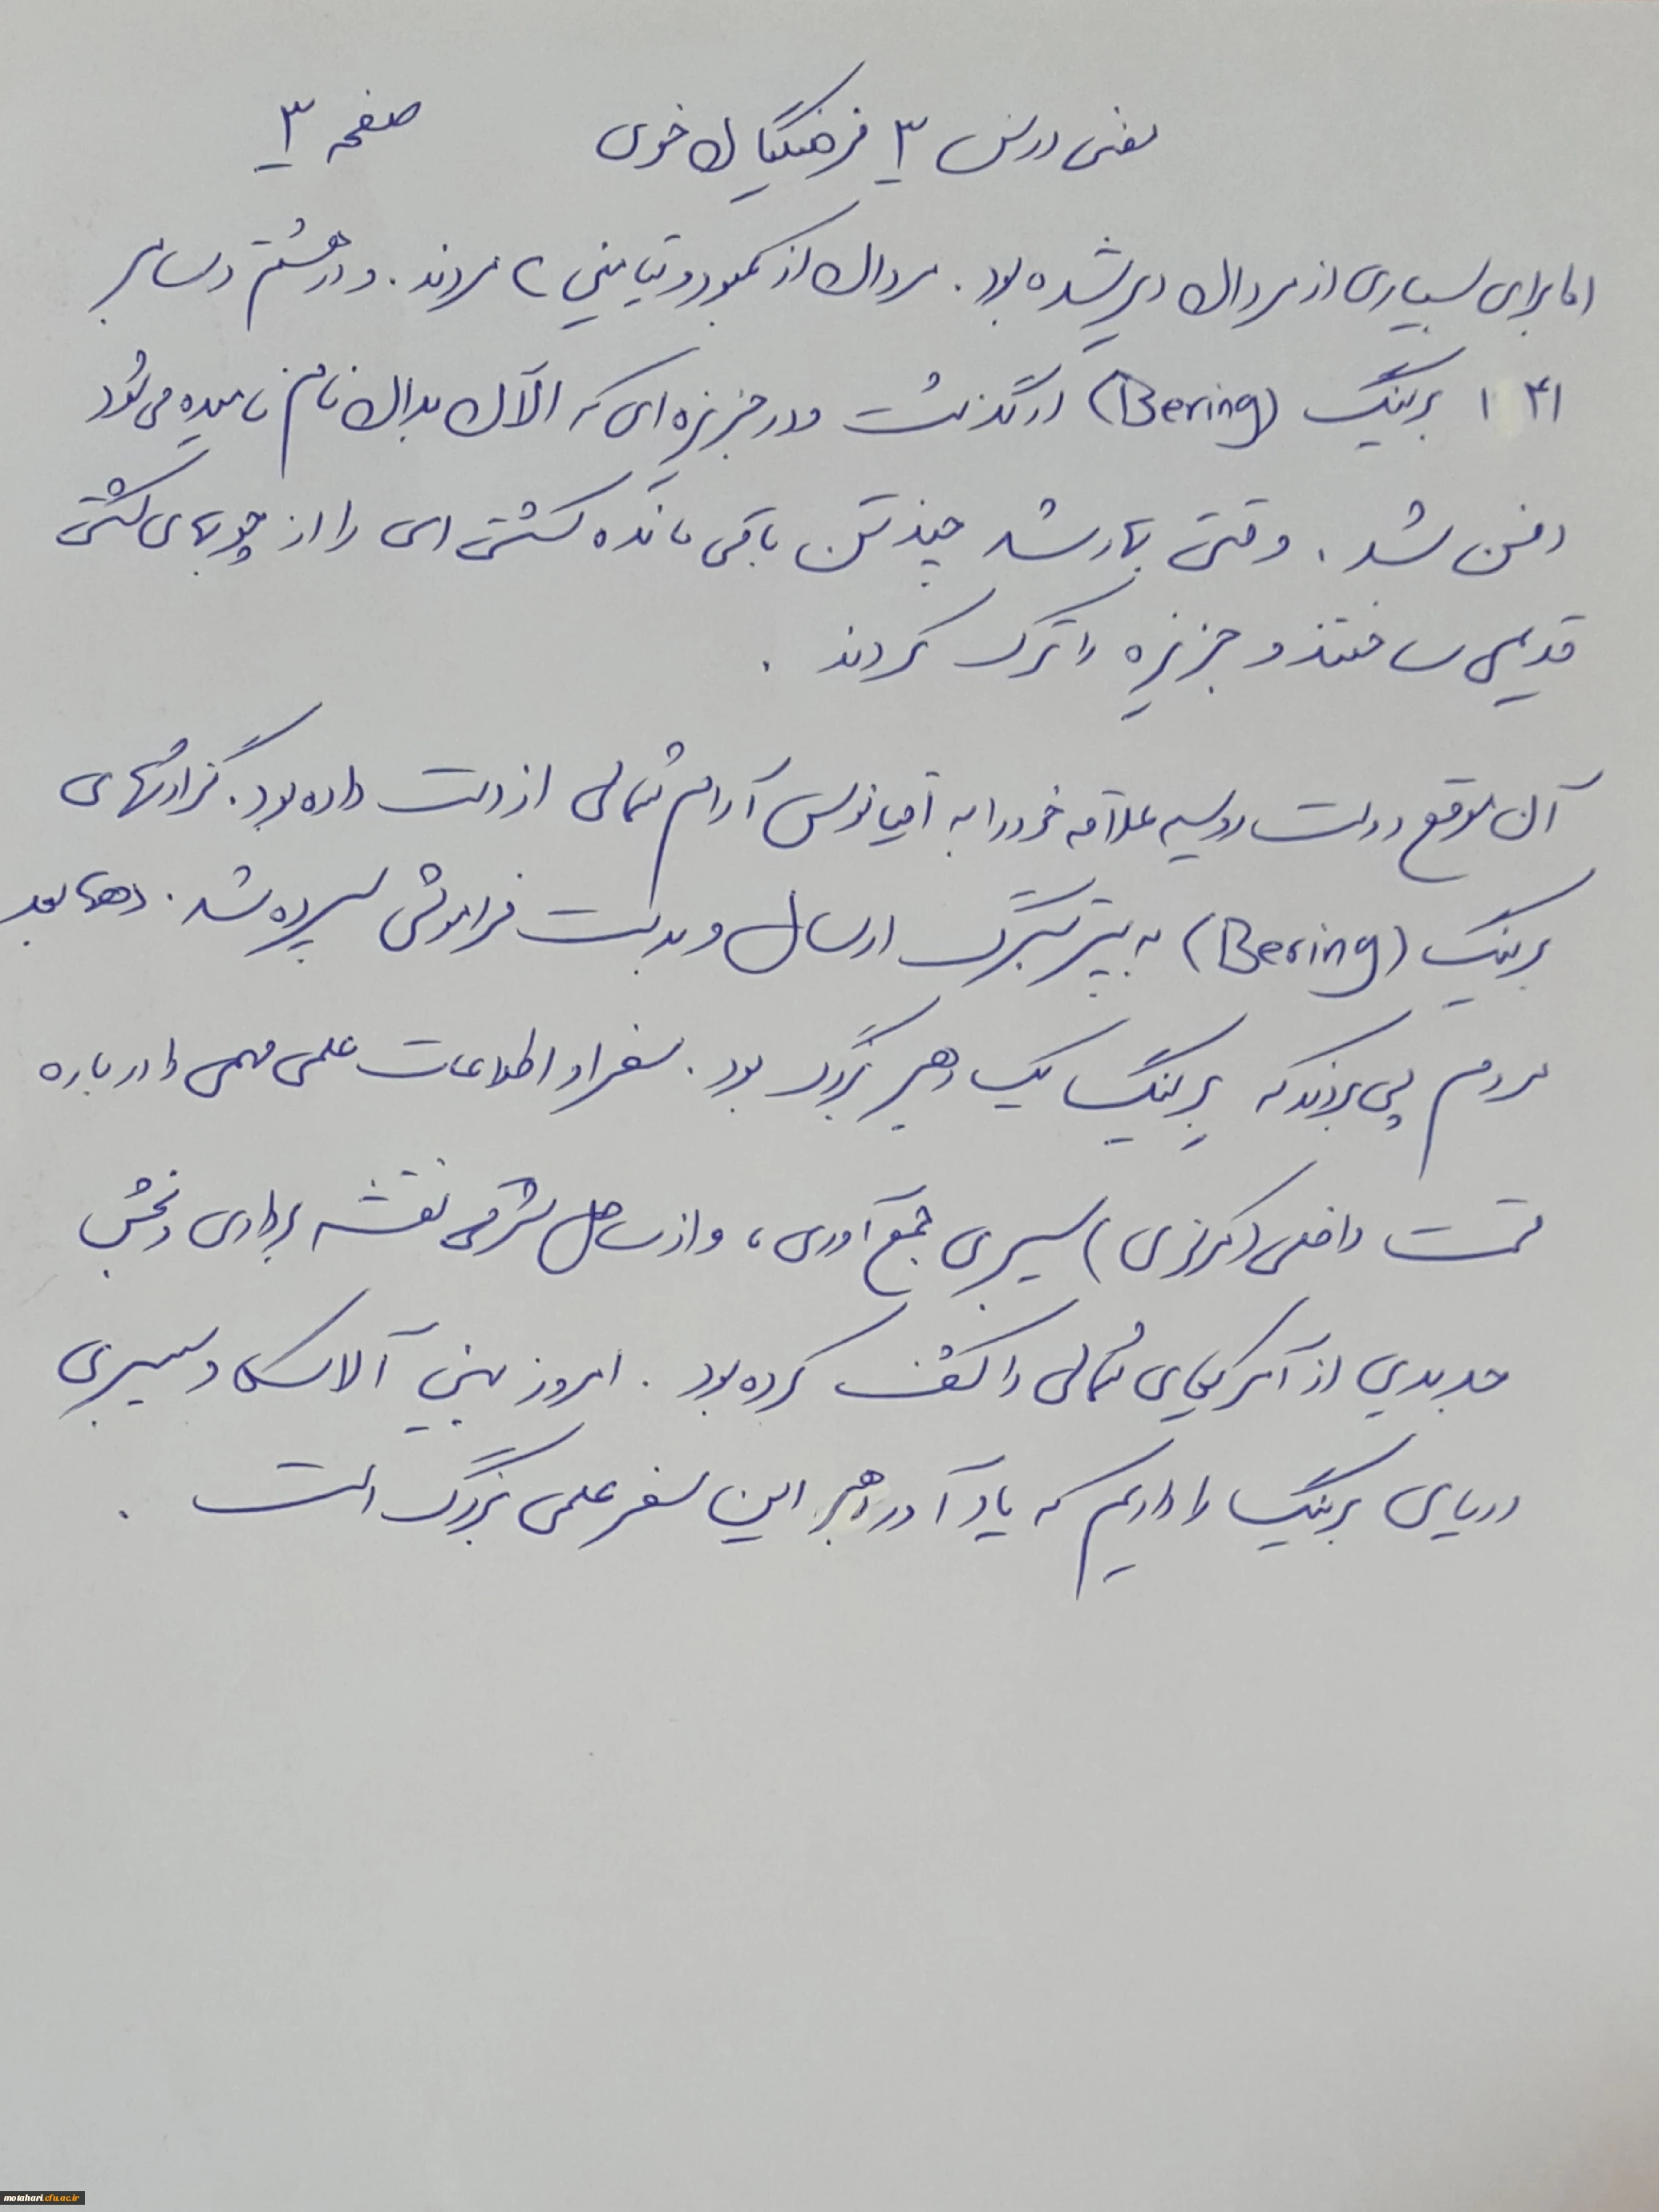 معنی درس ۳ فرهنگیان خوی صفحه ۳
اما برای بسیاری از مردان دیر شده بود. مردان از کمبود ویتامین C مردند. و در هشتم دسامبر
۱ ۴۱ برینگ (Bering) درگذشت و در جزیره ای که الآن بدان نام نامیده می شود
دفن شد. وقتی بهار شد چند تن باقی مانده کشتی ای را از چوبهای کشتی
قدیمی ساختند و جزیره را ترک کردند.
آن موقع دولت روسیه علاقه خود را به اقیانوس آرام شمالی از دست داده بود. گزارشهای
برینگ (Bering) به پترزبرگ ارسال و بدست فراموشی سپرده شد. دهها بعد
مردم پی بردند که برینگ یک رهبر بزرگ بود. سفر او اطلاعات علمی مهمی را درباره
قسمت داخلی (مرکزی) سیبری جمع آوری، و از ساحل شرقی نقشه برداری و بخش
جدیدی از آمریکای شمالی را کشف کرده بود. امروز بین آلاسکا و سیبری
دریای برینگ را داریم که یادآور رهبر این سفر علمی بزرگ است.
motahari.cfu.ac.ir